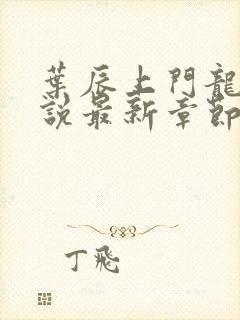 葉辰上門龍
說最新章節
丁飛